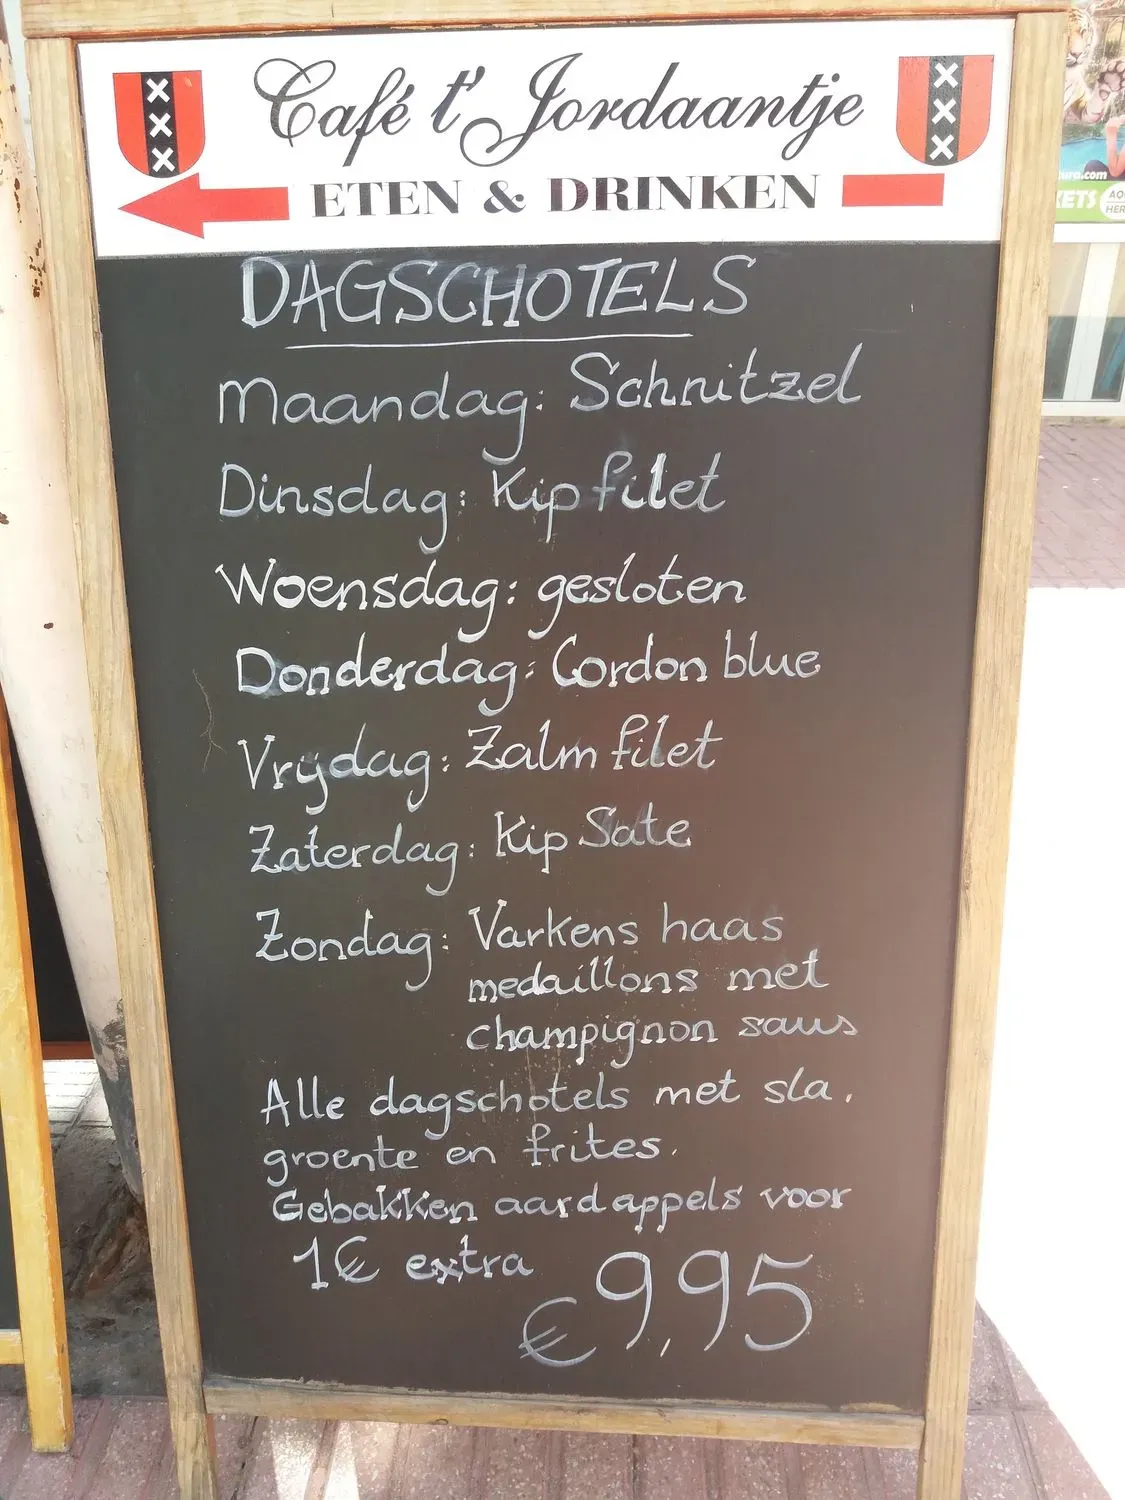 Café t' Jordaantje
ETEN & DRINKEN
DAGSCHOTELS
Maandag: Schnitzel
Dinsdag: Kipfilet
Woensdag: gesloten
Donderdag: Cordon blue
Vrijdag: Zalm filet
Zaterdag: Kip Sate
Zondag: Varkens haas
medaillons met
champignon saus
Alle dagschotels met sla,
groente en frites.
Gebakken aardappels voor
1€ extra
€9,95
ura.com
KETS
AQ
HER